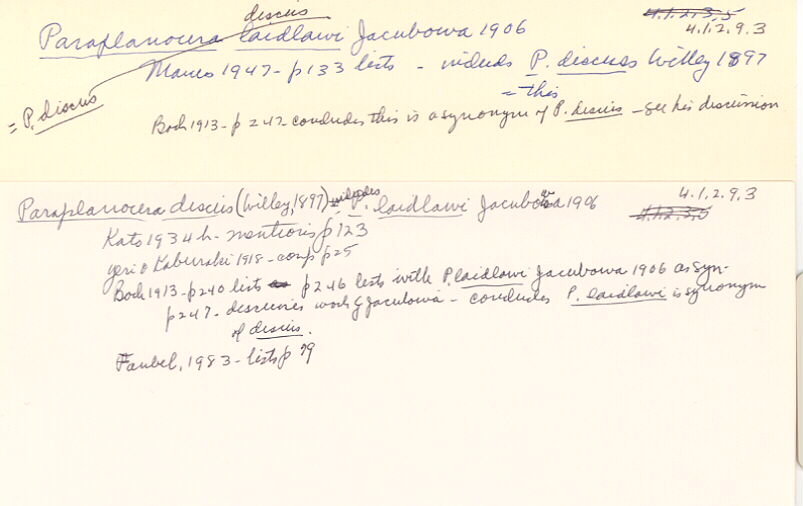 discus
4.1.2.3.5
Paraplanocera laidlawi Jacubowa 1906
4.1.2.9.3
Marcus 1947 - p133 lists - includes P. discus Willey 1897
= this
= P. discus
Bock 1913 - p 247 - concludes this is a synonym of P. discus - see his discussion
4.1.2.9.3
Paraplanocera discus (Willey, 1897) - includes P. laidlawi Jacubowa 1906
4.1.2.3.5
Kato 1934 b - mentions p 123
Yeri & Kaburaki 1918 - comp p25
Bock 1913 - p240 lists p246 lists with P. laidlawi Jacubowa 1906 as syn-
p247 - discusses work of Jacubowa - concludes P. laidlawi is synonym
of discus.
Faubel, 1983 - lists p 79